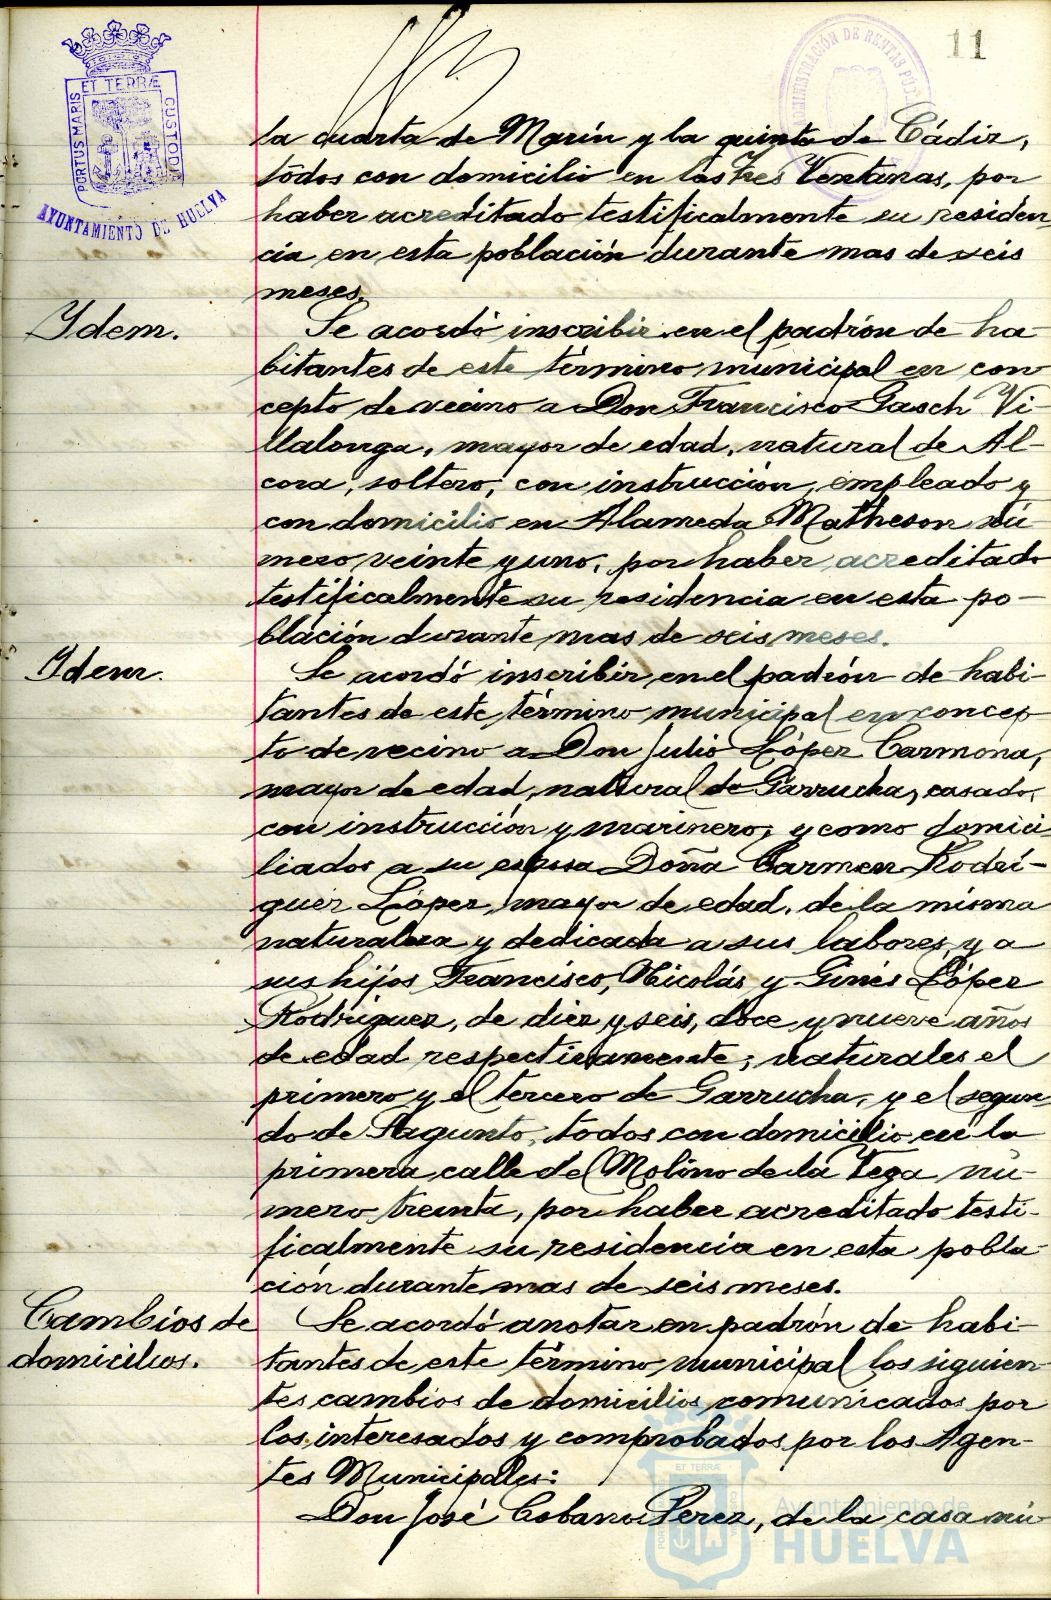 11
PORTUS MARIS ET TERRÆ CUSTODIA
AYUNTAMIENTO DE HUELVA
ADMINISTRACIÓN DE RENTAS PÚBL
la cuarta de Marín y la quinta de Cádiz,
todos con domicilio en las Tres Ventanas, por
haber acreditado testificalmente su residen
cia en esta población durante mas de seis
meses.
Ydem.
Se acordó inscribir en el padrón de ha-
bitantes de este término municipal en con
cepto de vecino a Don Francisco Gasch Vi-
llalonga, mayor de edad, natural de Al-
cora, soltero, con instrucción, empleado y
con domicilio en Alameda Matheson nú
mero veinte y uno, por haber acreditado
testificalmente su residencia en esta po-
blación durante mas de seis meses.
Ydem.
Se acordó inscribir en el padrón de habi-
tantes de este término municipal en concep
to de vecino a Don Julio López Carmona,
mayor de edad, natural de Garrucha, casado,
con instrucción y marinero, y como domici
liados a su esposa Doña Carmen Rodrí-
guez López, mayor de edad, de la misma
naturaleza y dedicada a sus labores, y a
sus hijos Francisco, Nicolás y Ginés López
Rodríguez, de diez y seis, doce y nueve años
de edad respectivamente; naturales el
primero y el tercero de Garrucha, y el segun
do de Sagunto, todos con domicilio en la
primera calle del Molino de la Vega nú-
mero treinta, por haber acreditado testi-
ficalmente su residencia en esta pobla-
ción durante mas de seis meses.
Cambios de
domicilios.
Se acordó anotar en padrón de habi-
tantes de este término municipal los siguien-
tes cambios de domicilios comunicados por
los interesados y comprobados por los Agen-
tes Municipales:
Don José Cobano Perez, de la casa nú-
Ayuntamiento de
HUELVA